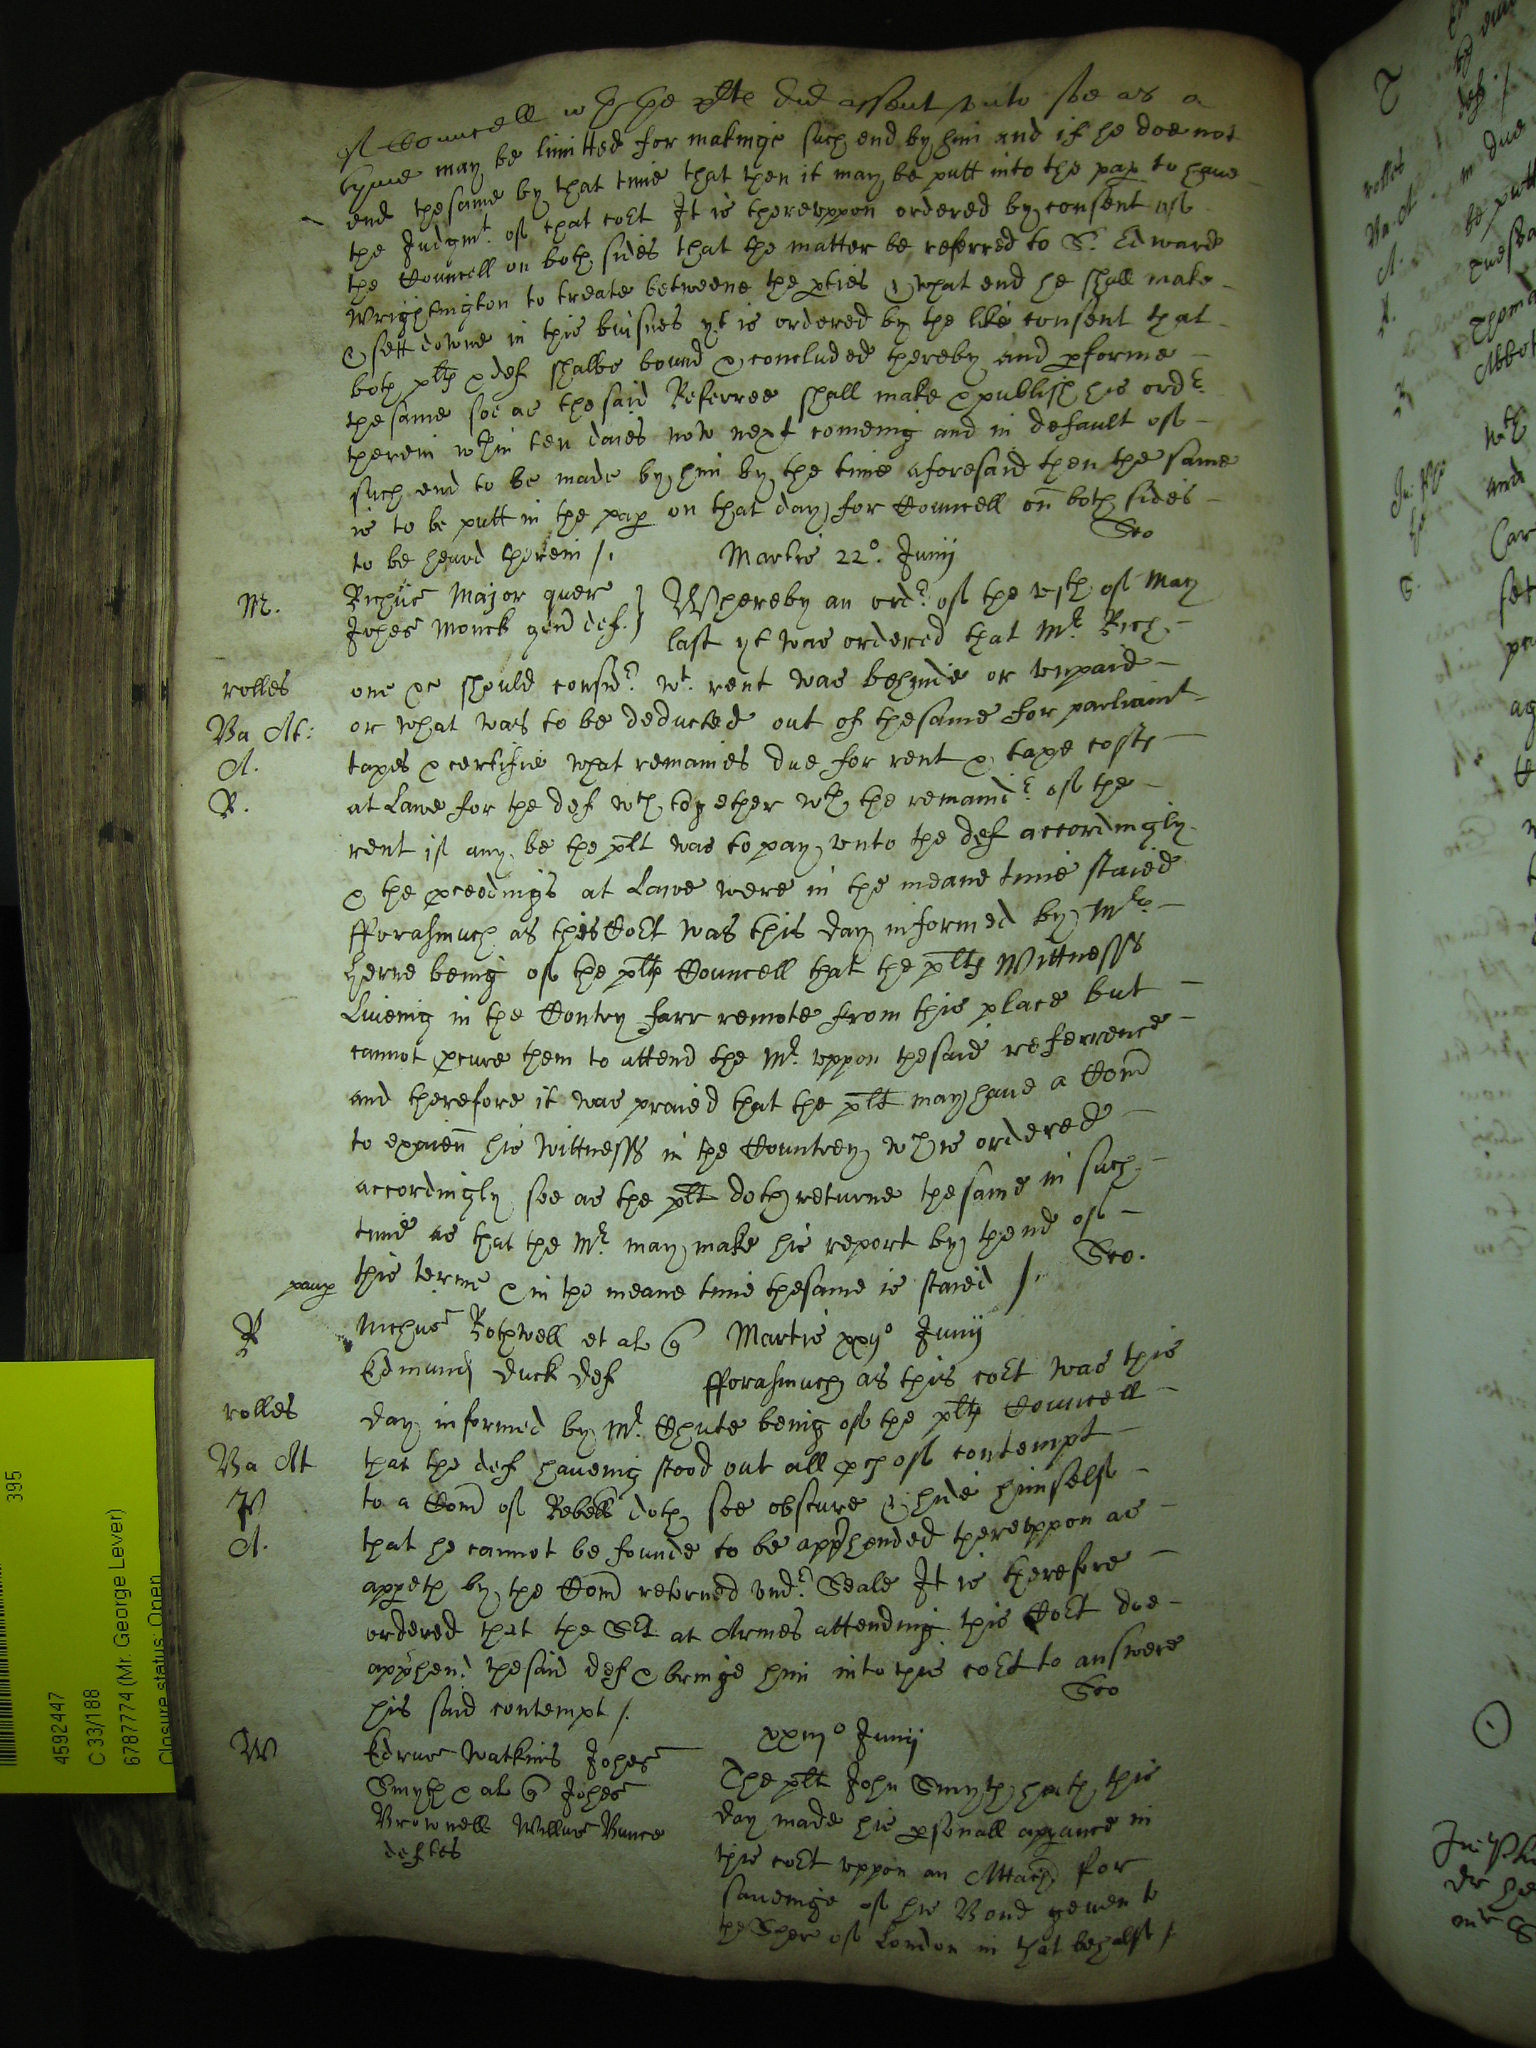 of Councell wch the plte did assent unto soe as a
tyme may be limitted for makinge such end by him and if he doe not
end the same by that time that then it may be putt into the pap to have
the Judgmt of that cort It is thereuppon ordered by consent of
the Councell on both sides that the matter be referred to Sr Edward
Wrightington to treate betweene the pties & what end he shall make
& sett downe in this buisnes yt is ordered by the like consent that
both plts & def shalbe bound & concluded thereby and pforme
the same soe as the said Referree shall make & publish his ordr
therein wthin ten daies now next comeing and in default of
such end to be made by him by the time aforesaid then the same
is to be putt in the pap on that day for Councell on both sides
to be heard therein /.
Martis 22o. Junij
M.
Richus Major quer
Johes Monck gen def.
Whereby an ordr of the vth of May
last yt was ordered that Mr Rich
rolles
one &c should consider wt rent was behinde or unpaid
Va At:
or what was to be deducted out of the same for parliamt
A.
taxes & certifie what remaines due for rent & taxe costs
R.
at Lawe for the def wch together wth the remaindr of the
rent if any be the plt was to pay unto the def accordingly
& the pceedings at Lawe were in the meane time staied
fforasmuch as this Cort was this day informed by Mr
Herne being of the plts Councell that the plts Wittnesses
Liveing in the Contry farr remote from this place but
cannot pcure them to attend the Mr uppon the said referrence
and therefore it was praied that the plt may have a Com
to examen his Wittnesses in the Countrey wch is ordered
accordingly soe as the plt doth returne the same in such
time as that the Mr may make his report by thend of
this terme & in the meane time the same is staied /.
paup
R
Michus Rothwell et al q
Edmund Duck def
Martis xxijo Junij
fforasmuch as this cort was this
rolles
day informed by Mr Chute being of the plts Councell
Va At
that the def haveing stood out all pces of contempt
P
to a Com of Rebell doth soe obscure & hide himself
A.
that he cannot be founde to be apprhended thereuppon as
appeth by the Com returned undr Seale It is therefore
ordered that the Srt at Armes attending this Cort doe
apprhend the said def & bringe him into this cort to answere
his said contempt /.
W
xxiijo Junij
Edrus Watkins Johes
Smyth & al q Johes
Brownell Willus Bunce
deftes
The plt John Smyth hath this
day made his psonall apparance in
this cort uppon an Attach for
saveinge of his Bond geven to
the Sher of London in that behalf /
395
4592447
C 33/188
6787774 (Mr. George Lever)
Closure status: Open